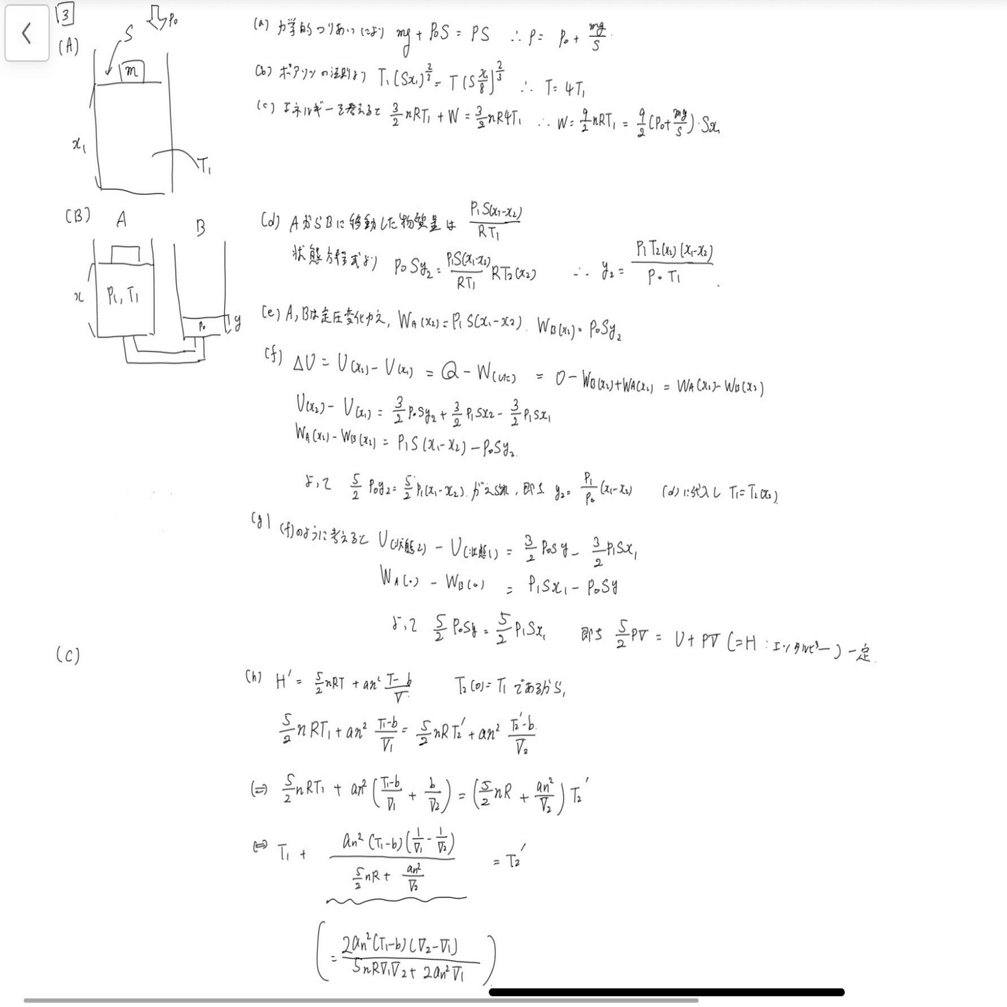 3
(A)
S
P₀
m
x₁
T₁
(a) 力学的つりあいにより mg + P₀S = PS ∴ P = P₀ + mg/S
(b) ポアソンの法則より T₁(Sx₁)^{2/3} = T(S x₁/8)^{2/3} ∴ T = 4T₁
(c) エネルギーを考えると 3/2 nRT₁ + W = 3/2 nR4T₁ ∴ W = 9/2 nRT₁ = 9/2 (P₀ + mg/S)・Sx₁
(B)
A
B
x
P₁, T₁
P₀
y
(d) AからBに移動した物質量は P₁S(x₁-x₂)/RT₁
状態方程式より P₀Sy₂ = P₁S(x₁-x₂)/RT₁ RT₂(x₂) ∴ y₂ = P₁T₂(x₂)(x₁-x₂)/P₀T₁
(e) A, Bは定圧変化ゆえ, W_A(x₂) = P₁S(x₁-x₂). W_B(x₂) = P₀Sy₂
(f) ΔU = U(x₂) - U(x₁) = Q - W = 0 - W_B(x₂) + W_A(x₂) = W_A(x₂) - W_B(x₂)
U(x₂) - U(x₁) = 3/2 P₀Sy₂ + 3/2 P₁Sx₂ - 3/2 P₁Sx₁
W_A(x₂) - W_B(x₂) = P₁S(x₁-x₂) - P₀Sy₂
よって 5/2 P₀y₂ = 5/2 P₁(x₁-x₂). が, 即ち y₂ = P₁/P₀ (x₁-x₂) (d)に代入し T₁ = T₂(x₂)
(g) (f)のように考えると U(状態2) - U(状態1) = 3/2 P₀Sy - 3/2 P₁Sx₁
W_A(0) - W_B(0) = P₁Sx₁ - P₀Sy
よって 5/2 P₀Sy = 5/2 P₁Sx₁ 即ち 5/2 PV = U + PV (=H : エンタルピー) 一定.
(C)
(h) H' = 5/2 nRT + an² (T-b)/V T₂(0) = T₁ であるから,
5/2 nRT₁ + an² (T₁-b)/V₁ = 5/2 nRT₂' + an² (T₂'-b)/V₂
(⇔) 5/2 nRT₁ + an² ((T₁-b)/V₁ + b/V₂) = (5/2 nR + an²/V₂) T₂'
⇔ T₁ + an²(T₁-b)(1/V₁ - 1/V₂) / (5/2 nR + an²/V₂) = T₂'
( = 2an²(T₁-b)(V₂-V₁) / (5nRV₁V₂ + 2an²V₁) )